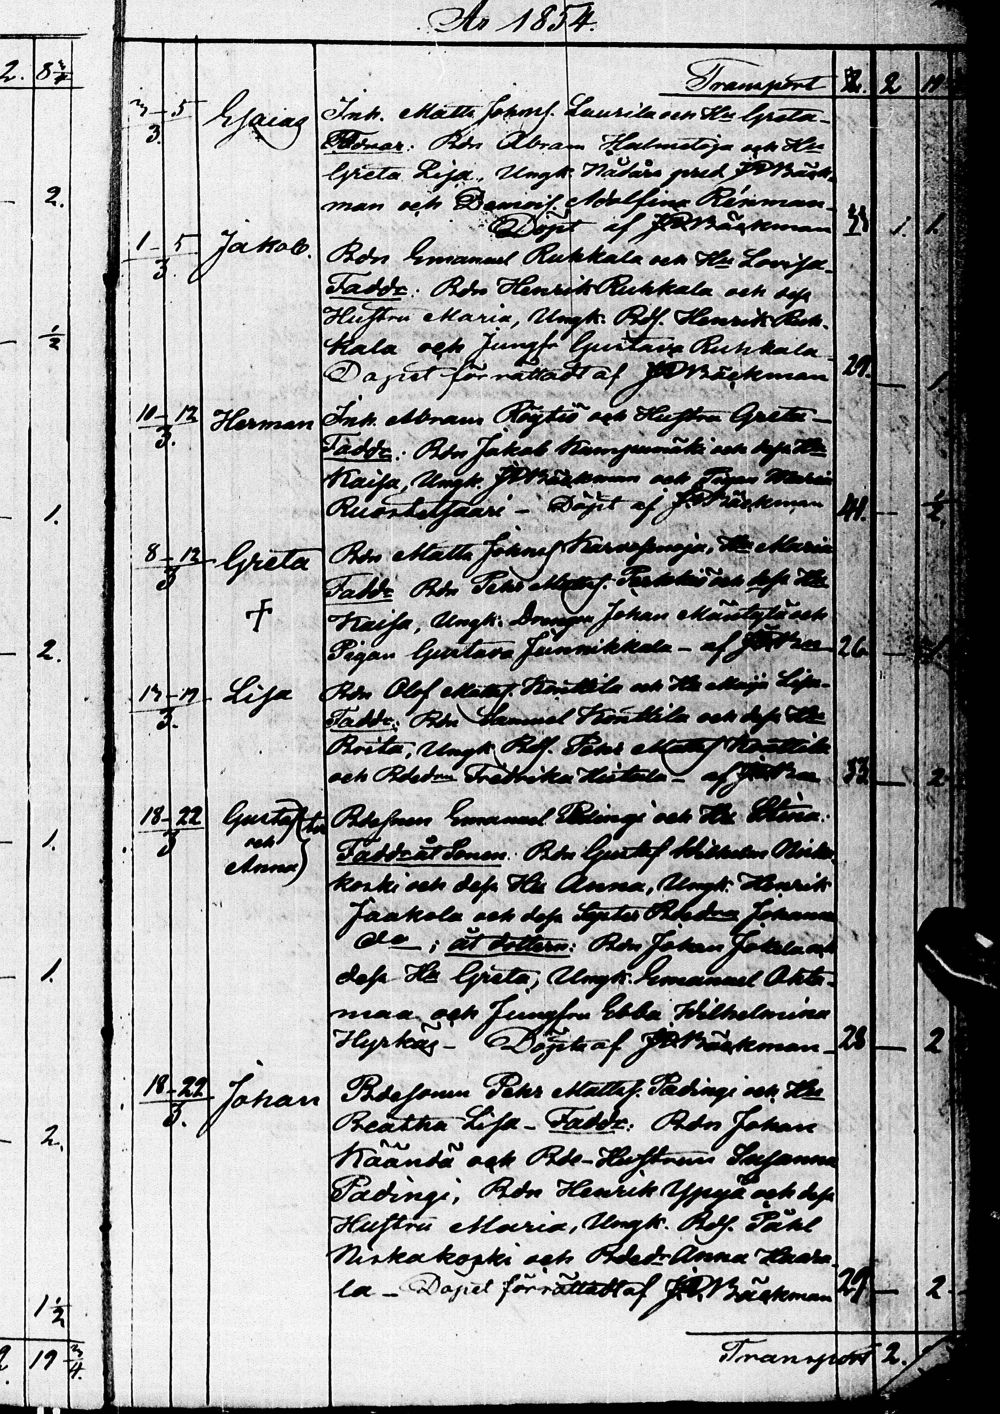 Ao 1854.
2. 8 3/4
Transport 2. 2
3–5/3. Esaias Inh. Matts Johnss. Laurila och Hu Greta
Faddrar: Bdn Abram Halmetoja och Hu
Greta Lisa, Ungk. Nådårs pred. J.D. Bäck-
man och Demois. Adolfina Renman
2. Döpt af J.D. Bäckman 38 1. 1
1–5/3. Jakob. Bdn Emanuel Ruhkala och Hu Lovisa
Faddr: Bdn Henrik Ruhkala och dess
Hustru Maria, Ungk. Bds. Henrik Ruh-
1/2 kala och Jungfr Gustava Ruhkala
Dopet förrättadt af J.D. Bäckman 29. — 1.
10–12/3. Herman Inh. Abram Röytiö och Hustru Greta
Faddr: Bdn Jakob Kampumäki och dess Hu
Kaisa, Ungk. J.D. Bäckman och Pigan Maria
1. – Döpt af J.D. Bäckman 41. — 1/2.
8–12/3 Greta Bdn Matts Johnss Hu Maria
Faddr Bdn Pehr Mattss. Perkkiö och dess Hu
+ Kaisa, Ungk: Drengen Johan Mäntylä och
2. Pigan Gustava Junnikkala – af J.D. Bn 26 — 1
13–19/3. Lisa Bdn Olof Mattss. Konttila och Hu Maja Lisa
Faddr: Bdn Samuel Konttila och dess Hu
Brita, Ungk Bds. Pehr Mattss Konttila
och Bdedn Fredrika Hietala – af J.D. Bn 33 — 2
18–22/3 Gustaf Bdesonen Emanuel Padingi och Hu Stina.
1. och Faddr åt Sonen: Bdn Gustaf Wilhelm Niska-
Anna koski och dess Hu Anna, Ungk. Henrik
Jaakola och dess Syster Bdedn Johanna
do; åt dottern: Bdn Johan Jokela och
1. dess Hu Greta, Ungk. Emanuel Ohta-
maa och Jungfru Ebba Wilhelmina
Hyrkäs – Döpta af J.D. Bäckman – 28 — 2
18–22/3. Johan Bdesonen Pehr Mattss. Padingi och Hu
2. Beatha Lisa – Faddr: Bdn Johan
Kääntä och Bde-Hustrun Susanna
Padingi, Bdn Henrik Ypyä och dess
Hustru Maria, Ungk. Bds. Påhl
Niskakoski och Bdedr Anna Haara-
1 1/2 la – Dopet förrättadt af J.D. Bäckman 29 — 2
19 3/4. Transport 2.